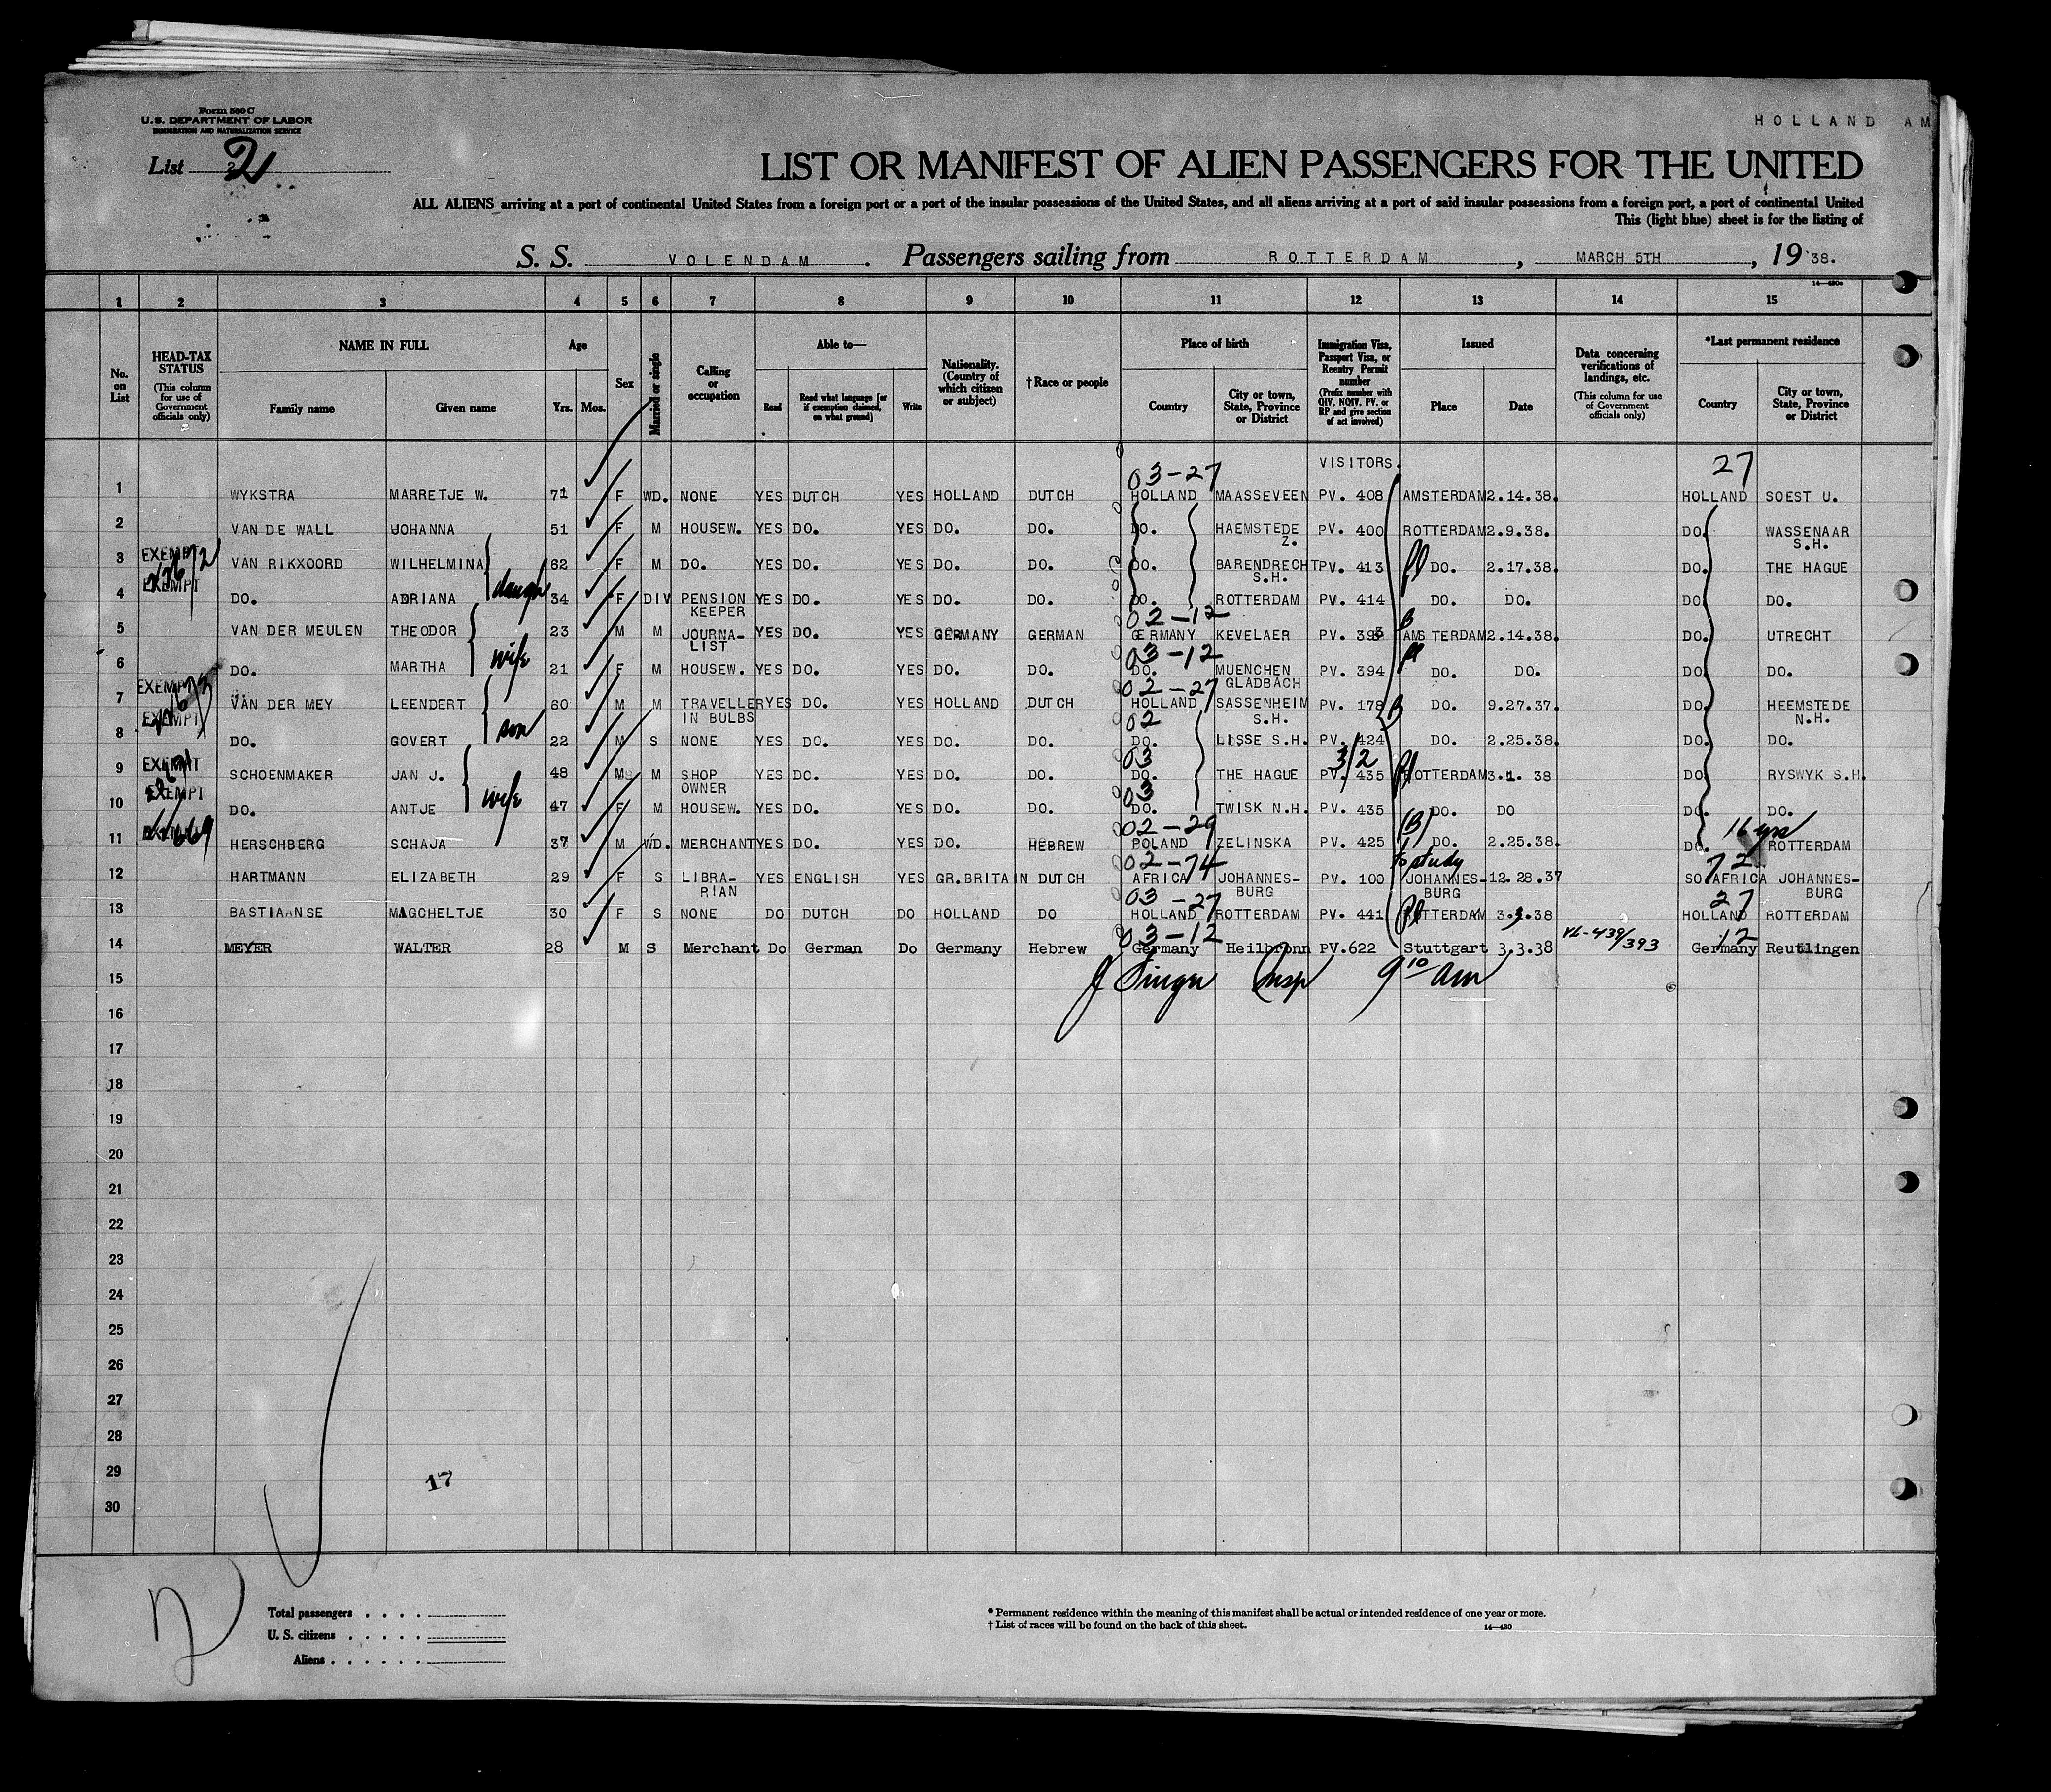 HOLLAND AM
Form 500 C
U.S. DEPARTMENT OF LABOR
IMMIGRATION AND NATURALIZATION SERVICE
List 2
LIST OR MANIFEST OF ALIEN PASSENGERS FOR THE UNITED
ALL ALIENS arriving at a port of continental United States from a foreign port or a port of the insular possessions of the United States, and all aliens arriving at a port of said insular possessions from a foreign port, a port of continental United
This (light blue) sheet is for the listing of
S. S. VOLENDAM. Passengers sailing from ROTTERDAM, MARCH 5TH, 19 38.
14—430a
1 2 3 4 5 6 7 8 9 10 11 12 13 14 15
No. on List
HEAD-TAX STATUS (This column for use of Government officials only)
NAME IN FULL Family name Given name
Age Yrs. Mos.
Sex
Married or single
Calling or occupation
Able to— Read Read what language [or if exemption claimed, on what ground] Write
Nationality. (Country of which citizen or subject)
†Race or people
Place of birth Country City or town, State, Province or District
Immigration Visa, Passport Visa, or Reentry Permit number (Prefix number with QIV, NQIV, PV, or RP and give section of act involved)
Issued Place Date
Data concerning verifications of landings, etc. (This column for use of Government officials only)
*Last permanent residence Country City or town, State, Province or District
VISITORS.
03-27 27
1 WYKSTRA MARRETJE W. 71 F WD. NONE YES DUTCH YES HOLLAND DUTCH HOLLAND MAASSEVEEN PV. 408 AMSTERDAM 2.14.38. HOLLAND SOEST U.
2 VAN DE WALL JOHANNA 51 F M HOUSEW. YES DO. YES DO. DO. DO. HAEMSTEDE Z. PV. 400 ROTTERDAM 2.9.38. DO. WASSENAAR S.H.
3 EXEMPT VAN RIKXOORD WILHELMINA 62 F M DO. YES DO. YES DO. DO. DO. BARENDRECHT S.H. PV. 413 DO. 2.17.38. DO. THE HAGUE
4 EXEMPT DO. ADRIANA daugh 34 F DIV PENSION KEEPER YES DO. YES DO. DO. DO. ROTTERDAM PV. 414 DO. DO. DO. DO.
02-12
5 VAN DER MEULEN THEODOR 23 M M JOURNALIST YES DO. YES GERMANY GERMAN GERMANY KEVELAER PV. 393 AMSTERDAM 2.14.38. DO. UTRECHT
03-12
6 DO. MARTHA wife 21 F M HOUSEW. YES DO. YES DO. DO. DO. MUENCHEN GLADBACH PV. 394 DO. DO. DO. DO.
02-27
7 EXEMPT VAN DER MEY LEENDERT 60 M M TRAVELLER IN BULBS YES DO. YES HOLLAND DUTCH HOLLAND SASSENHEIM S.H. PV. 178 DO. 9.27.37. DO. HEEMSTEDE N.H.
02
8 EXEMPT DO. GOVERT son 22 M S NONE YES DO. YES DO. DO. DO. LISSE S.H. PV. 424 DO. 2.25.38. DO. DO.
03 3/2
9 EXEMPT SCHOENMAKER JAN J. 48 M M SHOP OWNER YES DO. YES DO. DO. DO. THE HAGUE PV. 435 ROTTERDAM 3.1. 38 DO. RYSWYK S.H.
03
10 EXEMPT DO. ANTJE wife 47 F M HOUSEW. YES DO. YES DO. DO. DO. TWISK N.H. PV. 435 DO. DO DO. DO.
02-29 (B) 16 yrs
11 HERSCHBERG SCHAJA 37 M WD. MERCHANT YES DO. YES DO. HEBREW POLAND ZELINSKA PV. 425 DO. 2.25.38. DO. ROTTERDAM
02-74 to study 72
12 HARTMANN ELIZABETH 29 F S LIBRARIAN YES ENGLISH YES GR.BRITAIN DUTCH AFRICA JOHANNESBURG PV. 100 JOHANNESBURG 12.28.37 SO AFRICA JOHANNESBURG
03-27 27
13 BASTIAANSE MAGCHELTJE 30 F S NONE DO DUTCH DO HOLLAND DO HOLLAND ROTTERDAM PV. 441 ROTTERDAM 3.3.38 HOLLAND ROTTERDAM
03-12 12
14 MEYER WALTER 28 M S Merchant Do German Do Germany Hebrew Germany Heilbronn PV.622 Stuttgart 3.3.38 VL-439/393 Germany Reutlingen
15 J Singer Insp 9 10 am
16
17
18
19
20
21
22
23
24
25
26
27
28
29 17
30
2
Total passengers
U. S. citizens
Aliens
* Permanent residence within the meaning of this manifest shall be actual or intended residence of one year or more.
† List of races will be found on the back of this sheet.
14—430